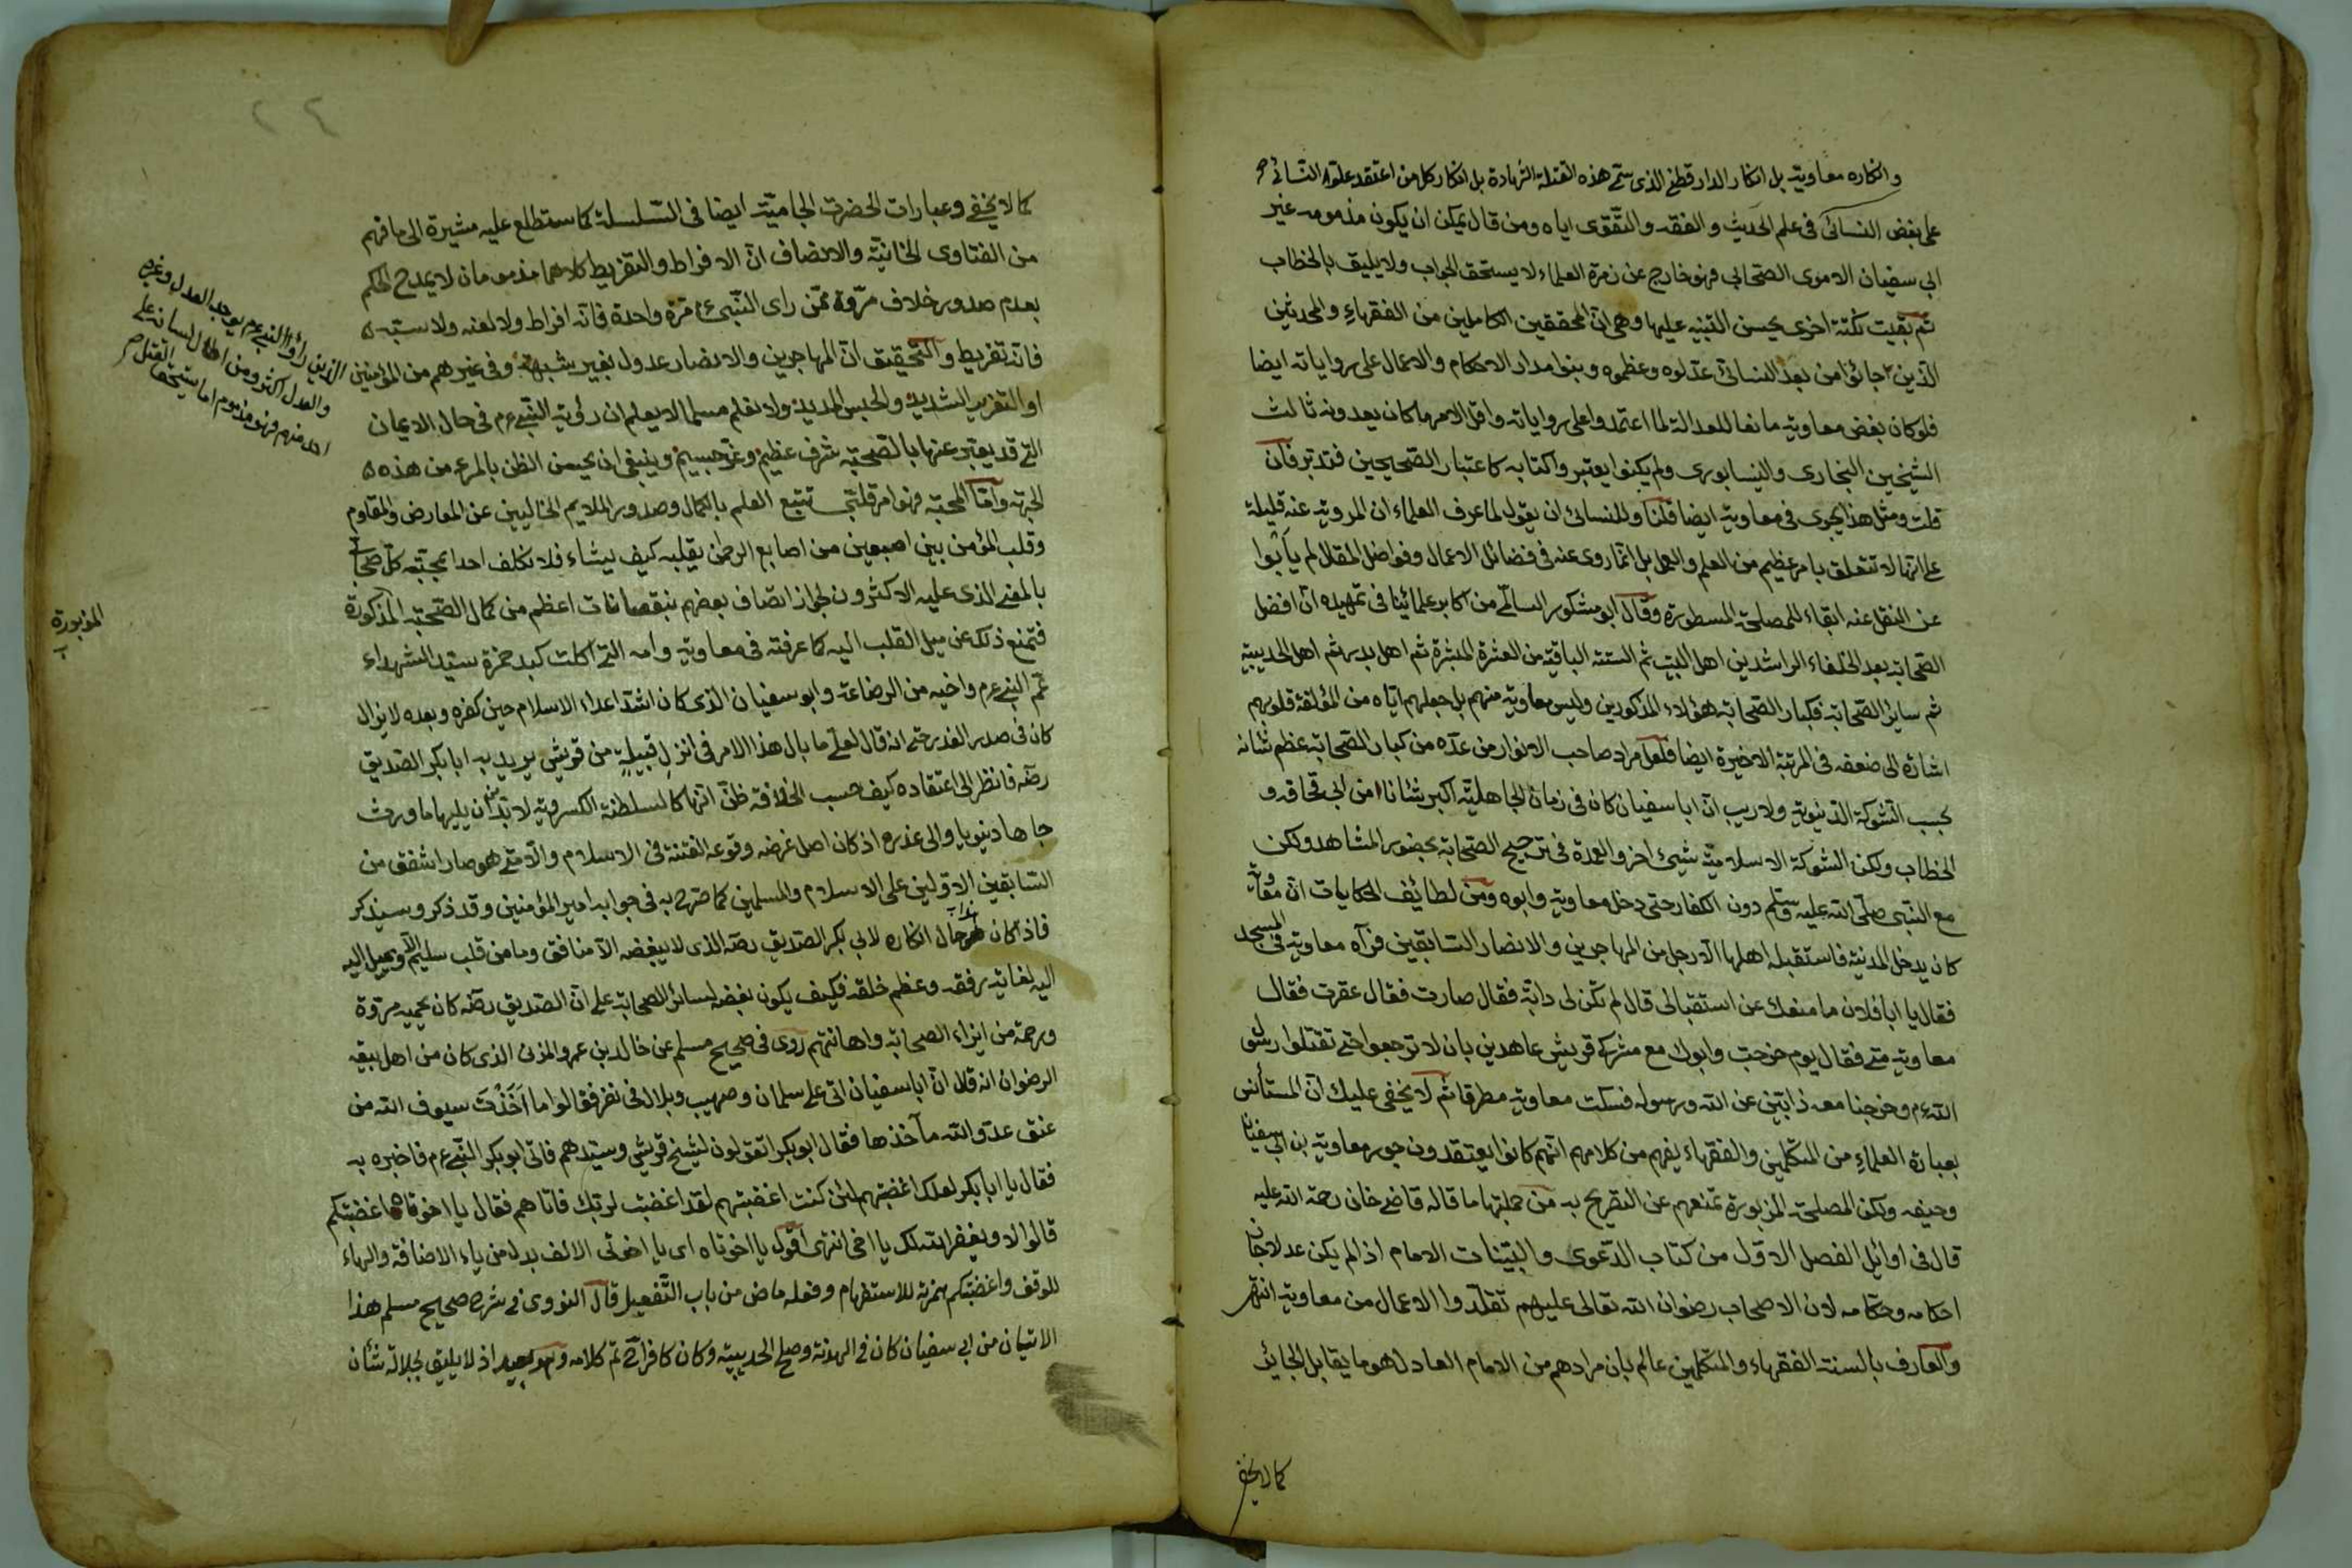 وانكاره معاوية بل انكار الدارقطني الذي ستم هذه القتلة الشهادة بل انكار كل من اعتقد علو النسائي
على بغض النسائي في علم الحديث والفقه والتقوى اياه ومن قال يمكن ان يكون مذمومه غير
ابي سفيان الاموي الصحابي فهو خارج عن زمرة العلماء لا يستحق الجواب ولا يليق بالخطاب
ثم بقيت نكتة اخرى يحسن التنبيه عليها وهي ان المحققين الكاملين من الفقهاء والمحدثين
الذين جاؤا من بعد النسائي عدلوه وعظموه وبنوا مدار الاحكام والاعمال على رواياته ايضا
فلو كان بغض معاوية مانعا للعدالة لما اعتمدوا على رواياته واقل الامر ما كان يعدونه ثالث
الشيخين البخاري والنيسابوري ولم يكونوا يعتبروا كتابه كاعتبار الصحيحين فتدبر فان
قلت ومثل هذا يجري في معاوية ايضا قلنا وللنسائي ان يقول لما عرف العلماء ان المروية عنه قليلة
على انها لا تتعلق بامر عظيم من العلم والعمل بل انما روى عنه في فضائل الاعمال وفواضل المقال لم يأبوا
عن النقل عنه ابقاء للمصلحة المسطورة وقال ابو مشكور السالمي من اكابر علمائنا في تمهيده ان افضل
الصحابة بعد الخلفاء الراشدين اهل البيت ثم الستة الباقية من العشرة المبشرة ثم اهل بدر ثم اهل الحديبية
ثم سائر الصحابة فكبار الصحابة هؤلاء المذكورين وليس معاوية منهم بل جعلهم اياه من المؤلفة قلوبهم
اشارة الى ضعفه في المرتبة الاخيرة ايضا فلعل مراد صاحب الانوار من عده من كبار الصحابة عظم شانه
بحسب الشوكة الدنيوية ولا ريب ان ابا سفيان كان في زمان الجاهلية اكبر شانا من ابي قحافة و
الخطاب ولكن الشوكة الاسلامية شيئ اخر والعمدة في ترجيح الصحابة بحضور المشاهد ولكن
مع النبي صلى الله عليه وسلم دون الكفار حتى دخل معاوية وابوه ومن لطائف الحكايات ان معاوية
كان يدخل المدينة فاستقبله اهلها الا رجل من المهاجرين والانصار السابقين فرآه معاوية في المسجد
فقال يا ابا فلان ما منعك عن استقبالي قال لم تكن لي دابة فقال صارت فقال عقرت فقال
معاوية متى فقال يوم خرجت وابوك مع مشركي قريش عاهدين بان لا ترجعوا حتى تقتلوا رسول
الله عم وخرجنا معه ذابين عن الله ورسوله فسكت معاوية مطرقا ثم لا يخفى عليك ان المستأنس
بعبارة العلماء من المتكلمين والفقهاء يفهم من كلامهم انهم كانوا يعتقدون جور معاوية بن ابي سفيان
وحيفه ولكن المصلحة المزبورة تمنعهم عن التصريح به من جملتها ما قاله قاضي خان رحمة الله عليه
قال في اوائل الفصل الاول من كتاب الدعوى والبينات الامام اذا لم يكن عدلا جاز
احكامه وحكامه لان الاصحاب رضوان الله تعالى عليهم تقلدوا الاعمال من معاوية انتهى
والعارف بالسنة الفقهاء والمتكلمين عالم بان مرادهم من الامام العادل هو ما يقابل الجائر
كما لا يخفى
كما لا يخفى وعبارات الحضرت الجامية ايضا في السلسلة كما ستطلع عليه مشيرة الى ما فهم
من الفتاوى الخانية والانصاف ان الافراط والتفريط كلاهما مذمومان لا يمدح الحكم
بعدم صدور خلاف مروة ممن راى النبي عم مرة واحدة فانه افراط ولا لعنه ولا سبه
فانه تفريط والتحقيق ان المهاجرين والانصار عدول بغير شبهة وفي غيرهم من المؤمنين
الذين راوا النبي عم يوجد العدل وغيره
والعدل اكثر ومن اطال لسانه على
احد منهم فهو مذموم اما يستحق القتل
او التعزير الشديد والحبس المديد ولا نعلم مسلما لا يعلم ان رؤية النبي عم في حال الايمان
التي قد يعبر عنها بالصحبة شرف عظيم وعز جسيم وينبغي ان يحسن الظن بالمرء من هذه
الجهة واما المحبة فهو امر قلبي تتبع العلم بالكمال وصدور الملايم الخاليين عن المعارض والمقاوم
وقلب المؤمن بين اصبعين من اصابع الرحمن يقلبه كيف يشاء فلا نكلف احدا بمحبة كل صحابي
بالمعنى الذي عليه الاكثرون لجواز اتصاف بعضهم بنقصانات اعظم من كمال الصحبة المذكورة
المزبورة
فتمنع ذلك عن ميل القلب اليه كما عرفته في معاوية وامه التي اكلت كبد حمزة سيد الشهداء
عم النبي عم واخيه من الرضاعة وابو سفيان الذي كان اشد اعداء الاسلام حين كفره وبعده لا يزال
كان في صدره الغدر حتى انه قال لعلي ما بال هذا الامر في انزل قبيلة من قريش يريد به ابا بكر الصديق
رضه فانظر الى اعتقاده كيف حسب الخلافة ظن انها كالسلطنة الكسروية لا بد ان يليها ما ورث
جاها دنيويا والى غدره اذ كان اصل غرضه وقوعه الفتنة في الاسلام والا متى هو صار اشفق من
السابقين الاولين على الاسلام والمسلمين كما صرح به في جوابه امير المؤمنين وقد ذكر وسيذكر
فاذا كان هذا حال انكاره لابي بكر الصديق رضه الذي لا يبغضه الا منافق وما من قلب سليم الا ويميل اليه
اليه لغاية رفقه وعظم خلقه فكيف يكون بغضه لسائر الصحابة على ان الصديق رضه كان يحميه مروة
ورحمة من ايزاء الصحابة واهانتهم روى في صحيح مسلم عن خالد بن عمرو المزني الذي كان من اهل بيعة
الرضوان انه قال ان ابا سفيان اتى على سلمان وصهيب وبلال في نفر فقالوا ما اخذت سيوف الله من
عنق عدو الله مأخذها فقال ابو بكر اتقولون لشيخ قريش وسيدهم فاتى ابو بكر النبي عم فاخبره به
فقال يا ابا بكر لعلك اغضبتهم لئن كنت اغضبتهم لقد اغضبت لربك فاتاهم فقال يا اخوتاه اغضبتكم
قالوا لا ويغفر الله لك يا اخي انتهى اقول يا اخوتاه اي يا اخوتي الالف بدل من ياء الاضافة والهاء
للوقف واغضبتكم بهمزة للاستفهام وفعله ماض من باب التفعيل قال النووي في شرح صحيح مسلم هذا
الاتيان من ابي سفيان كان في الهدنة وصلح الحديبية وكان كافرا تم كلامه وهو بعيد اذ لا يليق لجلالة شأن